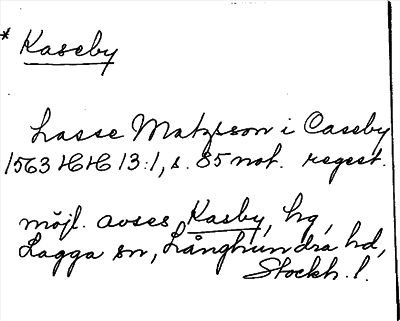 * Kaseby
Lasse Matzsson i Caseby
1563 HH 13:1, s. 85 not. regest.
möjl. avses Kasby, hg,
Lagga sn, Långhundra hd,
Stockh. l.